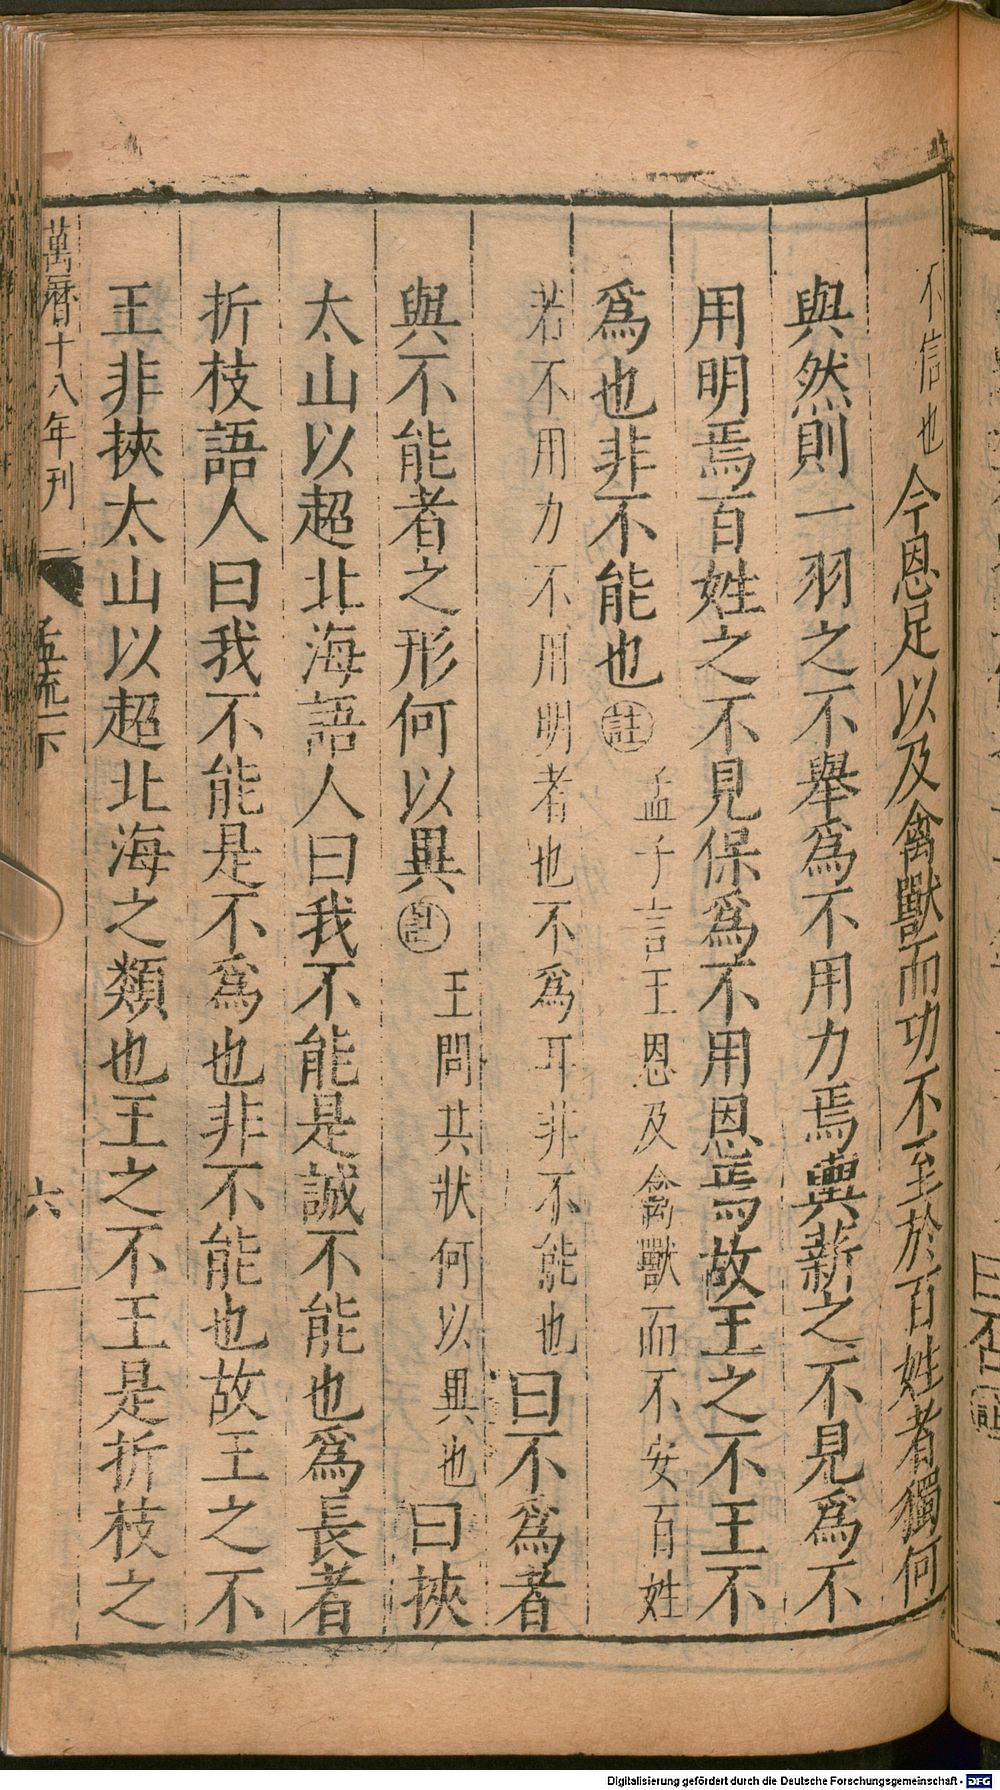 不信也今恩足以及禽獸而功不至於百姓者獨何
與然則一羽之不舉爲不用力焉輿薪之不見爲不
用明焉百姓之不見保爲不用恩焉故王之不王不
爲也非不能也註孟子言王恩及禽獸而不安百姓
若不用力不用明者也不爲耳非不能也曰不爲者
與不能者之形何以異註王問其狀何以異也曰挾
太山以超北海語人曰我不能是誠不能也爲長者
折枝語人曰我不能是不爲也非不能也故王之不
王非挾太山以超北海之類也王之不王是折枝之
萬曆十八年刊 孟疏一下 六
Digitalisierung gefördert durch die Deutsche Forschungsgemeinschaft - DFG